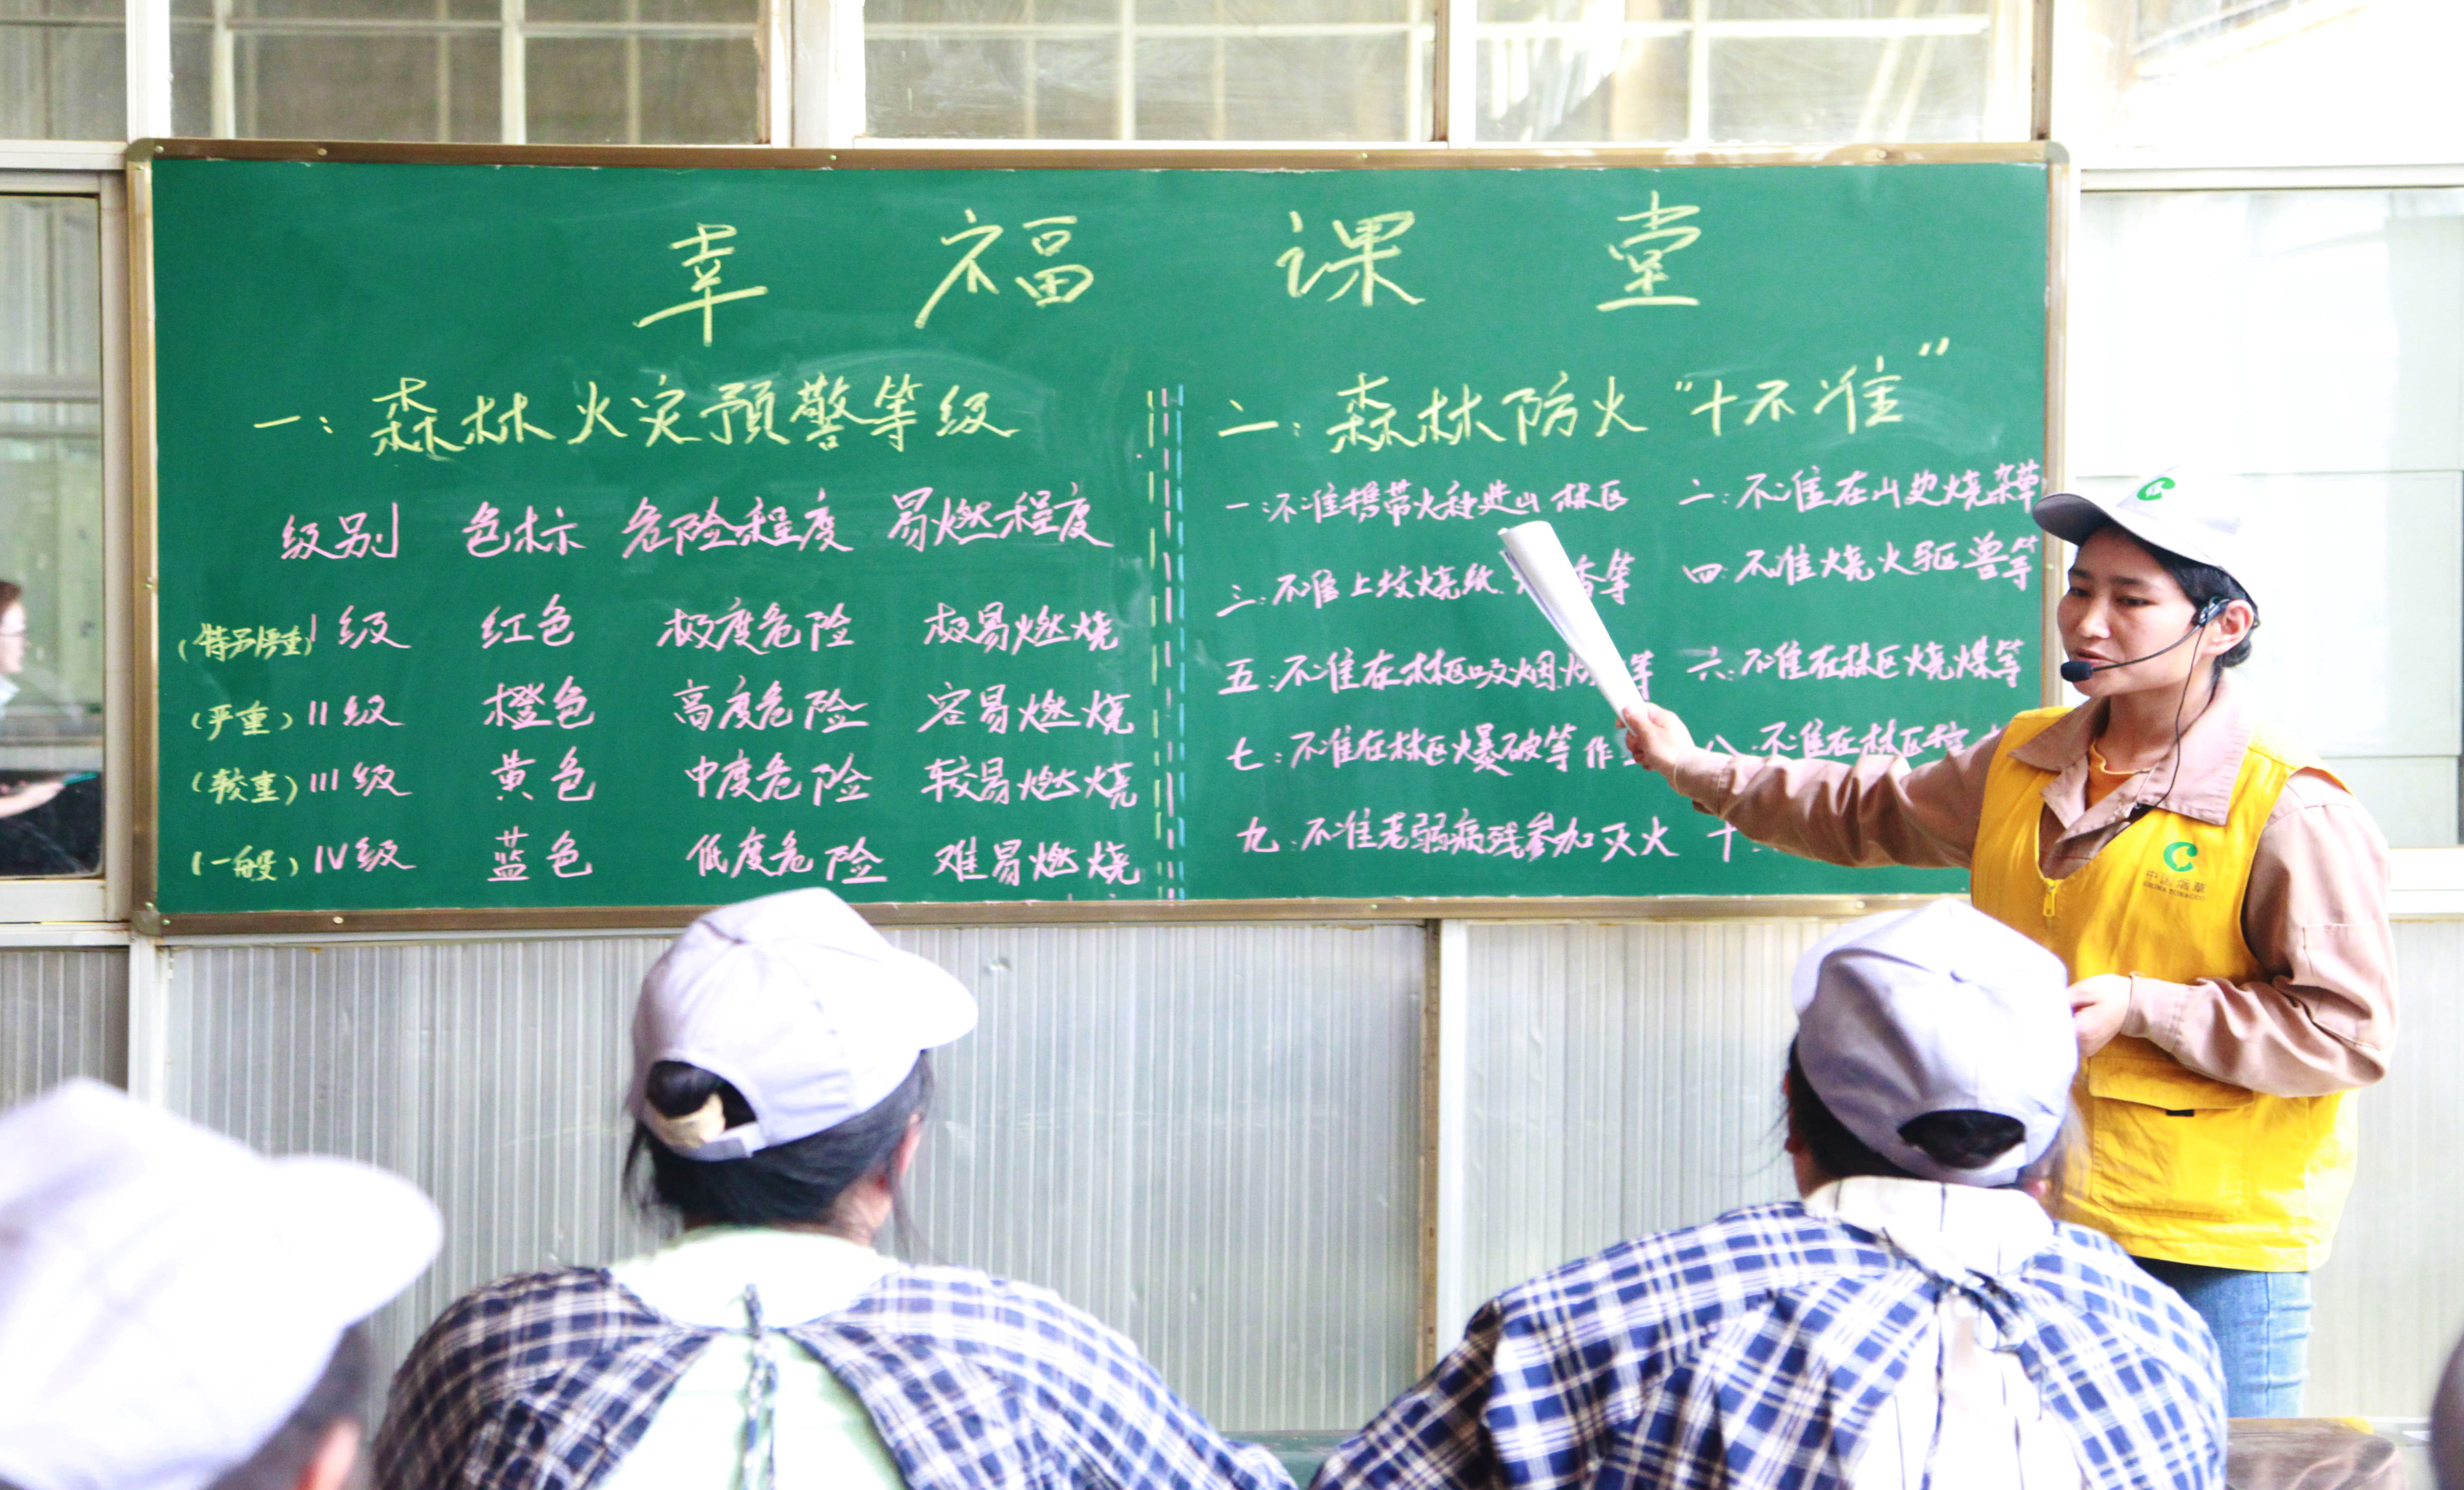 幸福课堂
一：森林火灾预警等级
级别 色标 危险程度 易燃程度
(特别严重) I级 红色 极度危险 极易燃烧
(严重) II级 橙色 高度危险 容易燃烧
(较重) III级 黄色 中度危险 较易燃烧
(一般) IV级 蓝色 低度危险 难易燃烧
二：森林防火“十不准”
一：不准携带火种进山林区 二：不准在山边烧杂草
三：不准上坟烧纸 香等 四：不准烧火驱兽等
五：不准在林区吸烟 等 六：不准在林区烧煤等
七：不准在林区爆破等作 八：不准在林区
九：不准老弱病残参加灭火 十
中国烟草
CHINA TOBACCO